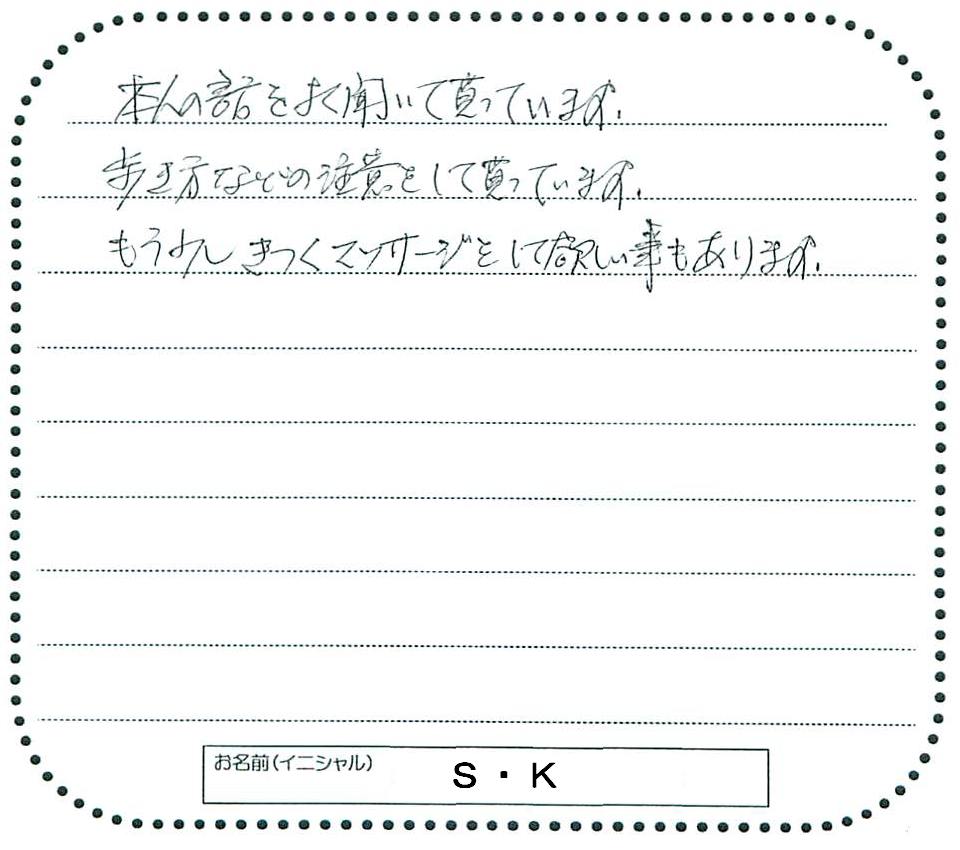 本人の話をよく聞いて貰っています.
歩き方などの注意をして貰っています.
もう少しきつくマッサージをして欲しい事もあります.
お名前(イニシャル)
S・K